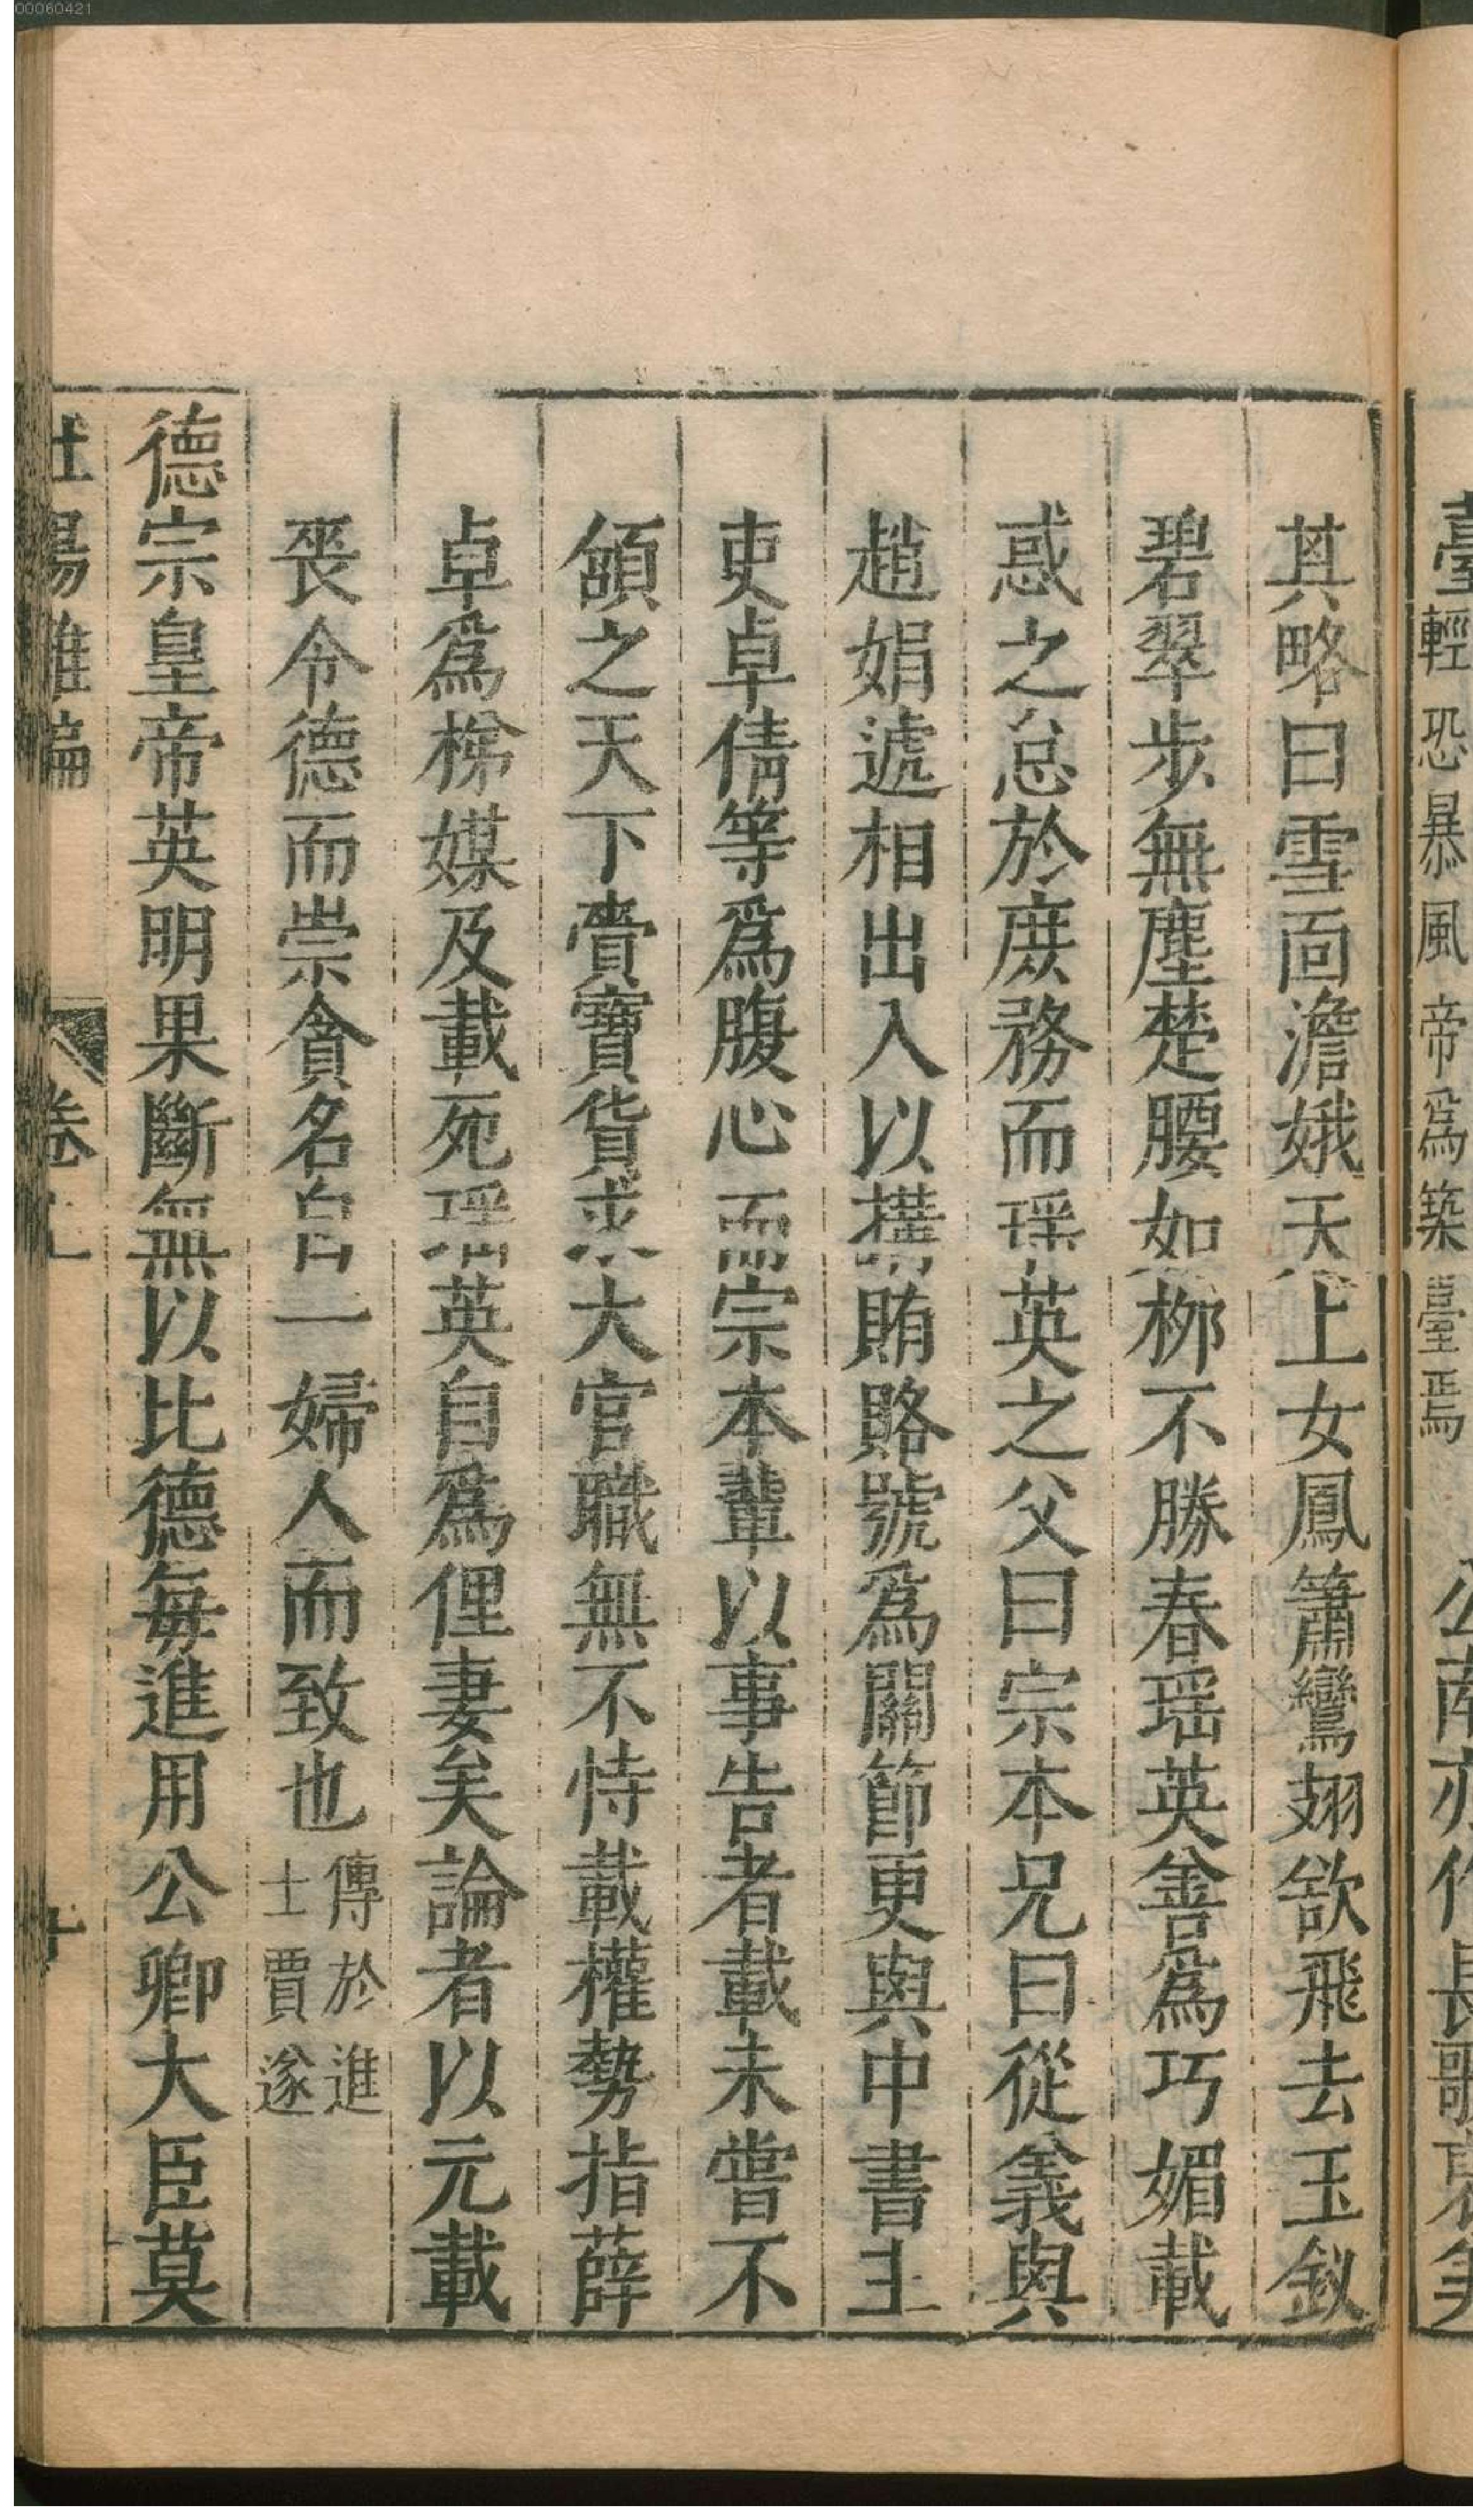 臺輕恐暴風帝爲築臺焉
公南亦作長歌褒美
其略曰雪面澹娥天上女鳳簫鸞翅欲飛去玉釵
碧翠步無塵楚腰如栁不勝春瑶英善爲巧媚載
惑之怠於庶務而瑶英之父曰宗本兄曰從義與
趙娟遞相出入以搆賄賂號爲關節更與中書主
吏卓倩等爲腹心而宗本輩以事告者載未嘗不
頷之天下賷寶貨求大官職無不恃載權勢指薛
卓爲梯媒及載死瑶英自爲俚妻矣論者以元載
喪令德而崇貪名自一婦人而致也傳於進士賈遂
德宗皇帝英明果斷無以比德每進用公卿大臣莫
杜陽雜編 卷上 十
00060421